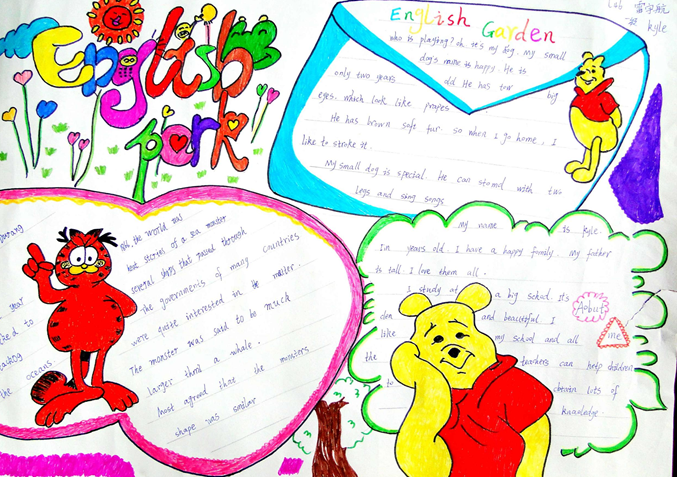 English
park
kyle
English Garden
who is playing? oh it's my dog. My small
dog's name is happy. He is
only two years old He has two big
eyes. which look like
He has brown soft fur. so when I go home, I
like to stroke it.
My small dog is special. He can stand with two
legs and sing songs
the world was
stories of a sea monster
several ships that passed through
year The governments of many countries
to were quite interested in the matter.
The monster was said to be much
the oceans. larger than a whale.
Most agreed that the monsters
shape was similar
my name is kyle.
In years old. I have a happy family. my father
is tall I love them all.
I study at a big school. Its
den and beautiful I
like my school and all
the teachers can help children
to obtain lots of
knowledge.
Aobut
me